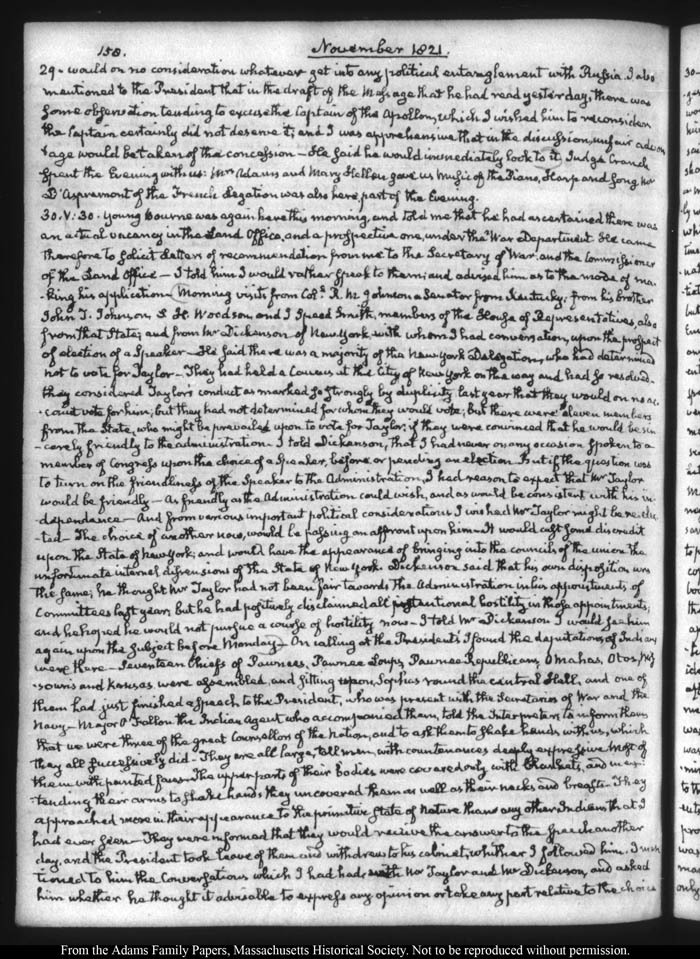 158.
November 1821.
29 - would on no consideration whatever get into any political entanglement with Russia. I also
mentioned to the President that in the draft of the Message that he had read yesterday, there was
some observation tending to excuse the Captain of the Apollon, which I wished him to reconsider.
the Captain certainly did not deserve it; and I was apprehensive that in the discussion, unfair advan
tage would be taken of the concession - He said he would immediately look to it. Judge Cranch
spent the Evening with us: Mrs Adams and Mary Hellen gave us Music of the Piano, Harp and Song. Mr
D'Aspremont of the French Legation was also here, part of the Evening.
30. V: 30. Young Bourne was again here this morning, and told me that he had ascertained there was
an actual vacancy in the Land Office, and a prospective one, under the War Department. He came
therefore to solicit Letters of recommendation from me to the Secretary of War, and the Commissioner
of the Land Office - I told him I would rather speak to them; and advised him as to the mode of ma-
-king his application - Morning visits from Col. R. M. Johnson a Senator from Kentucky; from his brother
John T. Johnson, S. H. Woodson, and J Speed Smith, members of the House of Representatives, also
from that State; and from Mr Dickenson of New York with whom I had conversation, upon the prospect
of election of a Speaker - He said there was a majority of the New York Delegation, who had determined
not to vote for Taylor - They had held a Caucus at the City of New York on the way and had so resolved -
they considered Taylor's conduct as marked so strongly by duplicity last year that they would on no ac-
-count vote for him; but they had not determined for whom they would vote; But there were eleven members
from the State, who might be prevailed upon to vote for Taylor, if they were convinced that he would be sin-
-cerely friendly to the administration - I told Dickenson, that I had never on any occasion spoken to a
member of Congress upon the choice of a Speaker, before or pending an election - But if the question was
to turn on the friendliness of the Speaker to the Administration, I had reason to expect that Mr Taylor
would be friendly - As friendly as the Administration could wish, and as would be consistent with his in-
-dependance - And from various important political considerations I wished Mr Taylor might be re-elec-
-ted - The choice of another now, would be passing an affront upon him - It would cast some discredit
upon the State of New York; and would have the appearance of bringing into the councils of the union the
unfortunate internal dissensions of the State of New York. Dickenson said that his own disposition was
the same; he thought Mr Taylor had not been fair towards the Administration in his appointments of
Committees last year; but he had positively disclaimed all intentional hostility in those appointments;
and he hoped he would not pursue a course of hostility now - I told Mr Dickenson I would see him
again upon the subject before Monday - On calling at the President's I found the deputations of Indians
were there - Seventeen Chiefs of Pawnees, Pawnee Loups, Pawnee Republicans, Omahas, Otos, Mis-
souris and Kansas were assembled, and sitting upon Sophas round the central Hall, and one of
them had just finished a Speech to the President, who was present with the Secretaries of War and the
Navy - Major O'Fallon the Indian Agent who accompanied them, told the Interpreters to inform them
that we were three of the great Counsellors of the Nation, and to ask them to shake hands with us, which
they all successively did - They are all large, tall men, with countenances deeply expressive most of
them with painted faces - The upper parts of their bodies were covered only with blankets, and in ex-
tending their arms to shake hands they uncovered them as well as their necks and breasts - They
approached more in their appearance to the primitive State of Nature than any other Indians that I
had ever seen - They were informed that they would receive the answer to the Speech another
day, and the President took leave of them and withdrew to his cabinet, whither I followed him. I men
tioned to him the Conversations which I had had, with Mr Taylor and Mr Dickenson, and asked
him whether he thought it adviseable to express any opinion or take any part relative to the choice
From the Adams Family Papers, Massachusetts Historical Society. Not to be reproduced without permission.